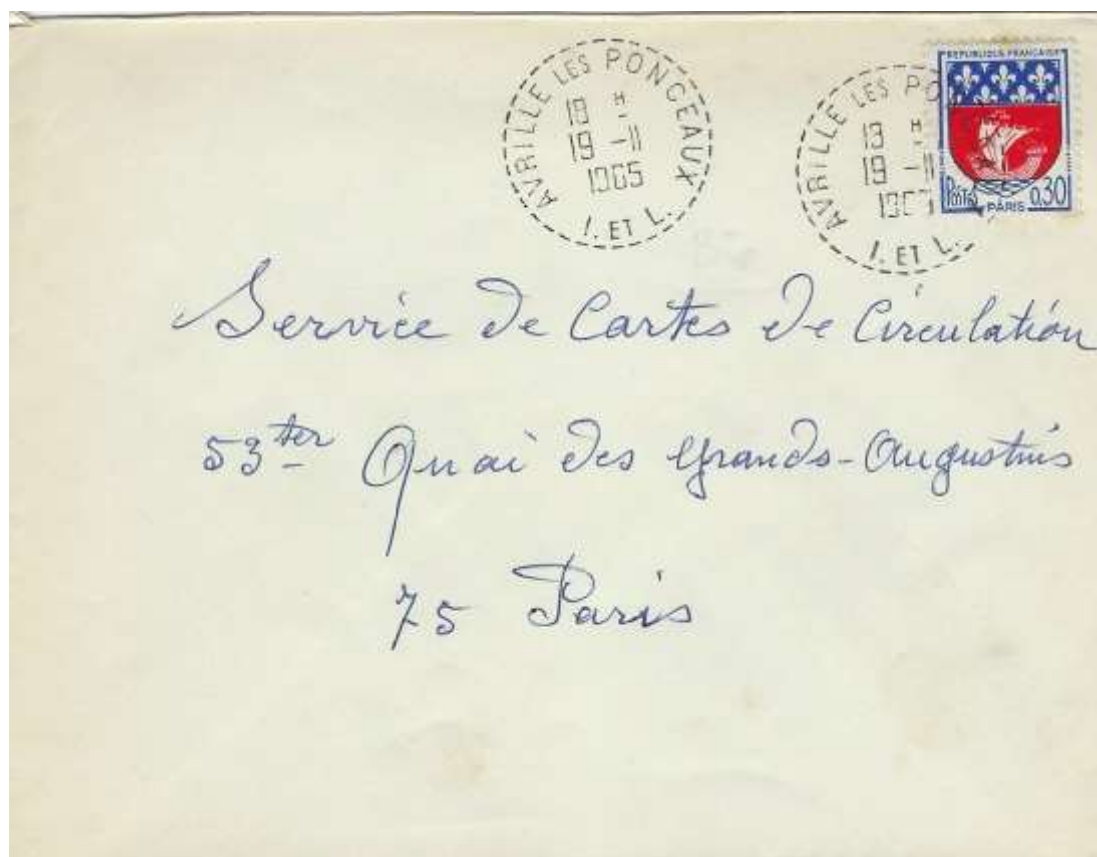 AVRILLE LES PONCEAUX
18 H
19 -11
1965
I. ET L.
AVRILLE LES PO
18 H
19 -11
I. ET L.
REPUBLIQUE FRANÇAISE
POSTES
PARIS
0,30
Service de Cartes de Circulation
53ter Quai des Grands-Augustins
75 Paris